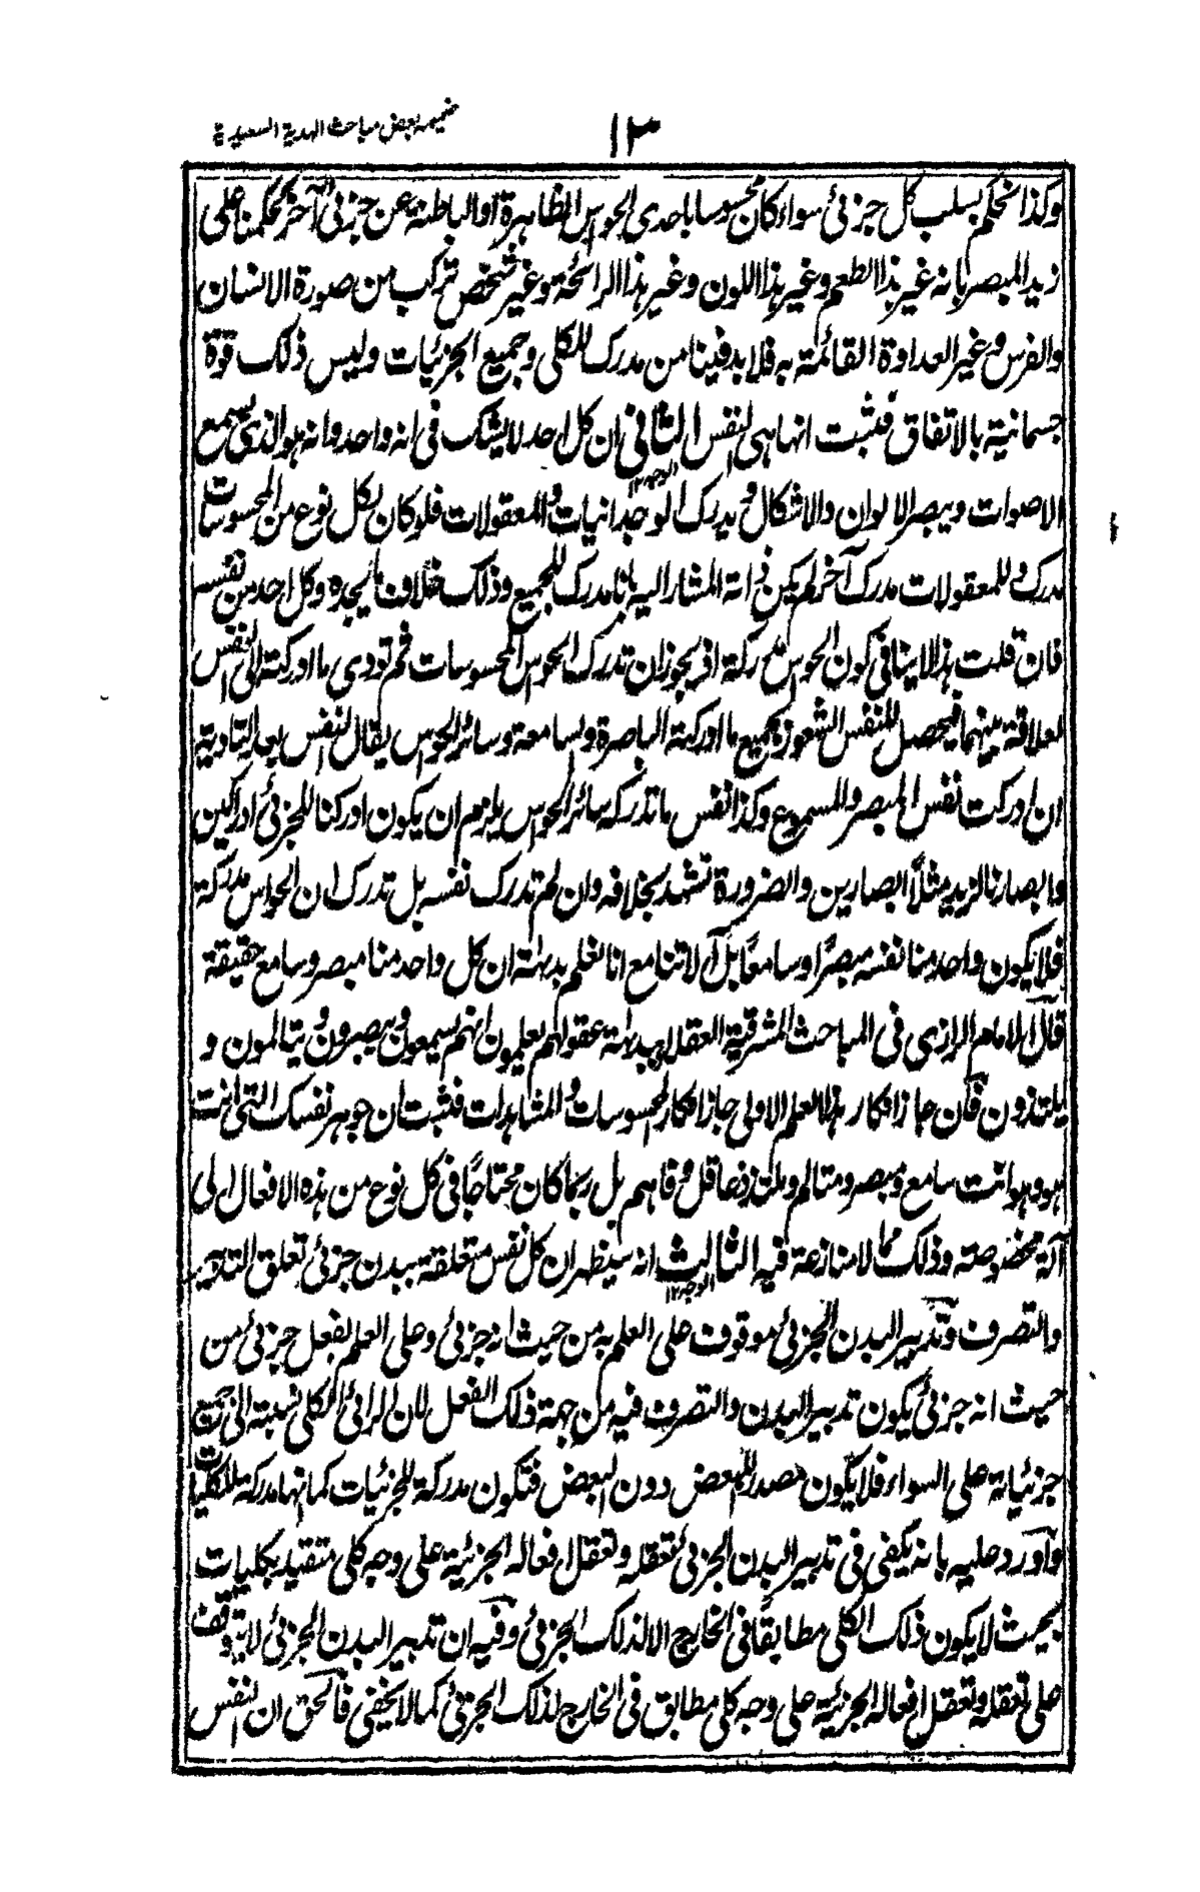 ضميمه بعض مباحث الهدية السعيدية
١٣
وكذا نحكم بسلب كل جزئي سواء كان محسوسا باحدى الحواس الظاهرة او الباطنة عن جزئي آخر كحكمنا على
زيد المبصر بانه غير هذا الطعم وغير هذا اللون وغير هذا الرائحة وغير شخص تركب من صورة الانسان
والفرس وغير العداوة القائمة به فلا بد فينا من مدرك للكلي وجميع الجزئيات وليس ذلك قوة
جسمانية بالاتفاق فثبت انها هى النفس الثاني ان كل احد لا يشك فى انه واحد وانه هو الذي يسمع
الوجه ١٢
الاصوات ويبصر الالوان والاشكال ويدرك الوجدانيات والمعقولات فلو كان لكل نوع من المحسوسات
مدرك وللمعقولات مدرك آخر لم يكن ذاته المشار اليه بانا مدرك للجميع وذلك خلاف ما يجده وكل احد من نفسه
فان قلت هذا لا ينافي كون الحواس مدركة اذ يجوز ان تدرك الحواس المحسوسات ثم تودي ما ادركته الى النفس
لعلاقة بينهما فيحصل للنفس الشعور بجميع ما ادركته الباصرة والسامعة وسائر الحواس يقال النفس بعد التادية
ان ادركت نفس المبصر والمسموع وكذا نفس ما تدركه سائر الحواس يلزم ان يكون ادركنا للجزئي ادراكين
وابصارنا لزيد مثلاً ابصارين والضرورة تشهد بخلافه وان لم تدرك نفسه بل تدرك ان الحواس مدركة
فلا يكون واحد منا نفسه مبصرًا وسامعًا بل آلاتنا مع انا نعلم بديهة ان كل واحد منا مبصر وسامع حقيقة
قال الامام الرازي فى المباحث المشرقية العقلاء ببديهة عقولهم يعلمون انهم يسمعون ويبصرون ويتالمون و
يلتذون فان جاز انكار هذا العلم الاولى جاز انكار المحسوسات والمشاهدات فثبت ان جوهر نفسك التي انت
هو وهو انت سامع ومبصر ومتالم وملتذ وعاقل وفاهم بل ربما كان محتاجًا فى كل نوع من هذه الافعال الى
آلة مخصوصة وذلك مما لا منازعة فيه الثالث انه سيظهر ان كل نفس متعلقة ببدن جزئي تعلق التدبير
الوجه ١٢
والتصرف وتدبير البدن الجزئي موقوف على العلم به من حيث انه جزئي وعلى العلم بفعل جزئي من
حيث انه جزئي يكون تدبير البدن والتصرف فيه من جهة ذلك الفعل لان الرائي الكلي نسبته الى جميع
جزئياته على السواء فلا يكون مصدرا للبعض دون البعض فتكون مدركة للجزئيات كما انها مدركة للكليات
واورد عليه بانه يكفي في تدبير البدن الجزئي تعقله وتعقل افعاله الجزئية على وجه كلى متقيد بكليات
بحيث لا يكون ذلك الكلى مطابقًا فى الخارج الا لذلك الجزئي وفيه ان تدبير البدن الجزئي لا يتوقف
على تعقله وتعقل افعاله الجزئية على وجه كلى مطابق فى الخارج لذلك الجزئي كما لا يخفى فالحق ان النفس